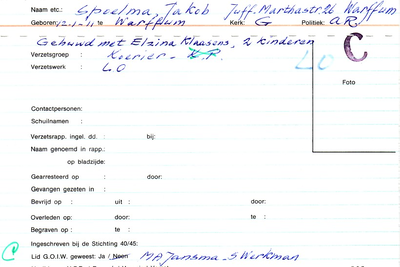 Naam etc.: Spoelma, Jakob Juff. Marthastr. 26 Warffum
Geboren: 12-1-'11 te Warffum Kerk: G Politiek: A.R.
Gehuwd met Elzina Klaasens, 2 kinderen
C
Verzetsgroep : Koerier - K.P.
Verzetswerk : L.O
LO
Foto
Contactpersonen:
Schuilnamen :
Verzetsrapp. ingel. dd. : bij:
Naam genoemd in rapp.:
op bladzijde:
Gearresteerd op : door:
Gevangen gezeten in :
Bevrijd op : uit : door:
Overleden op: door: te :
Begraven op : te :
C
Ingeschreven bij de Stichting 40/45:
Lid G.O.I.W. geweest: Ja / Neen M.A. Jansma - S Werkman